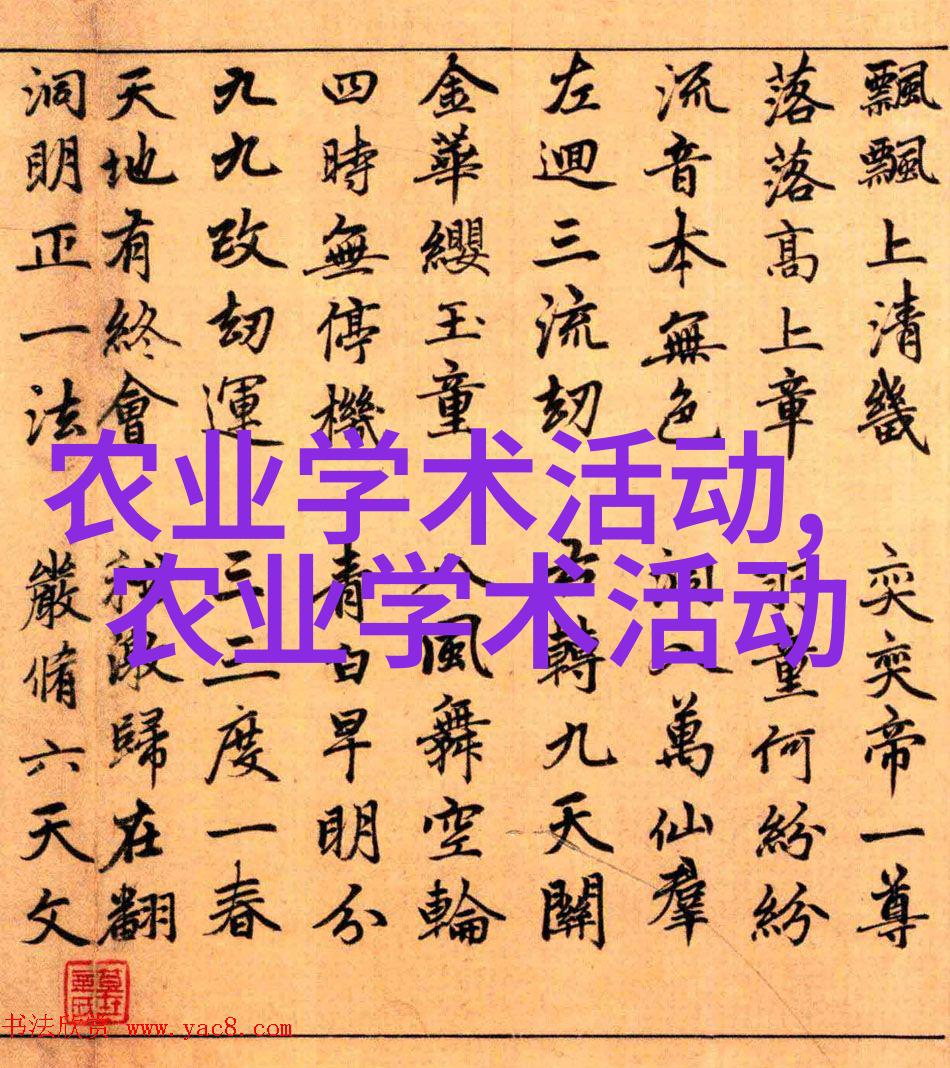 飄飄上清畿 奕奕帝一尊
落落高上章 何紛紛
流音本無色 萬仙羣
左迴三流劫 轉九天關
金華纓玉童 八風舞空輪
四時無停機 青白早明分
九九改劫運 三三度一春
天地有終會 歸在翻
洞明正一法 嚴脩六天文
农业学术活动,
农业学术活动
书法欣赏 www.yac8.com